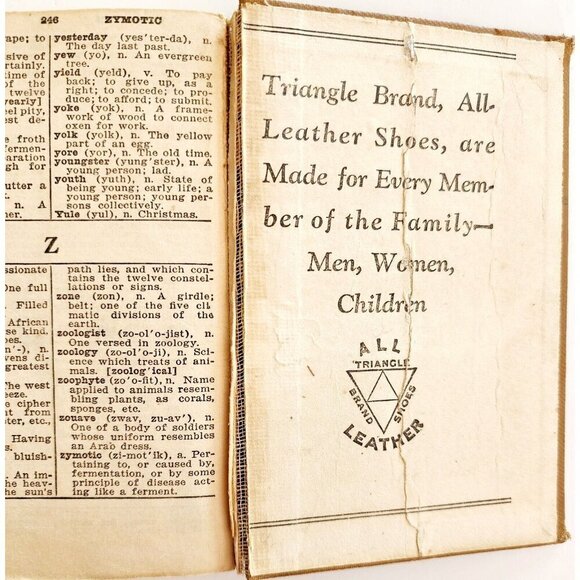 246 ZYMOTIC
ape; to
sive of
ertainly.
time of
twelve
yearly]
eel pity,
est de-
froth
fermen-
paration
gh for
utter a
n. A
her.
yesterday (yes'ter-da), n.
The day last past.
yew (yo), n. An evergreen
tree.
yield (yeld), v. To pay
back; to give up, as a
right; to concede; to pro-
duce; to afford; to submit.
yoke (yok), n. A frame-
work of wood to connect
oxen for work.
yolk (yolk), n. The yellow
part of an egg.
yore (yor), n. The old time.
youngster (yung'ster), n. A
young person; lad.
youth (yuth), n. State of
being young; early life; a
young person; young per-
sons collectively.
Yule (yul), n. Christmas.
Z
ssionate
One full
Filled
African
se kind.
es.
n'-), n.
vens di-
greatest
The west
eeze.
e cipher
nt from
ster, etc.,
Having
bluish-
An im-
he heav-
the sun's
path lies, and which con-
tains the twelve constel-
lations or signs.
zone (zon), n. A girdle;
belt; one of the five cli-
matic divisions of the
earth.
zoologist (zo-ol'o-jist), n.
One versed in zoology.
zoology (zo-ol'o-ji), n. Sci-
ence which treats of ani-
mals. [zoolog'ical]
zoophyte (zo'o-fit), n. Name
applied to animals resem-
bling plants, as corals,
sponges, etc.
zouave (zwav, zu-av'), n.
One of a body of soldiers
whose uniform resembles
an Arab dress.
zymotic (zi-mot'ik), a. Per-
taining to, or caused by,
fermentation, or by some
principle of disease act-
ing like a ferment.
Triangle Brand, All-
Leather Shoes, are
Made for Every Mem-
ber of the Family—
Men, Women,
Children
ALL
TRIANGLE
BRAND SHOES
LEATHER